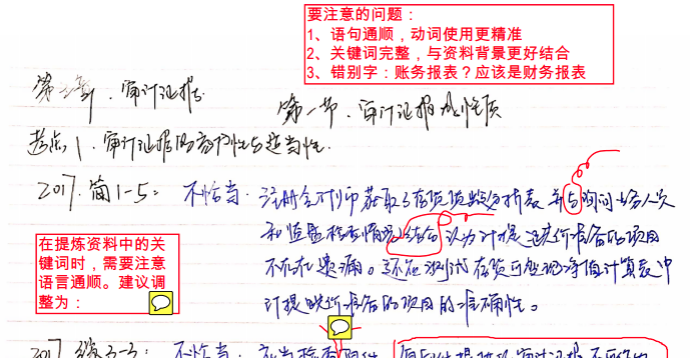 要注意的问题：
1、语句通顺，动词使用更精准
2、关键词完整，与资料背景更好结合
3、错别字：账务报表？应该是财务报表
第三章、审计证据
第一节、审计证据的性质
考点1、审计证据的充分性与适当性.
2017.简1-5： 不恰当. 注册会计师获取了存货货龄分析表 并与询问业务人员
和监盘检查情况结合 认为计提跌价准备的项目
不存在遗漏。还应测试存货可变现净值计算表中
计提跌价准备的项目的准确性。
在提炼资料中的关
键词时，需要注意
语言通顺。建议调
整为：
不恰当.